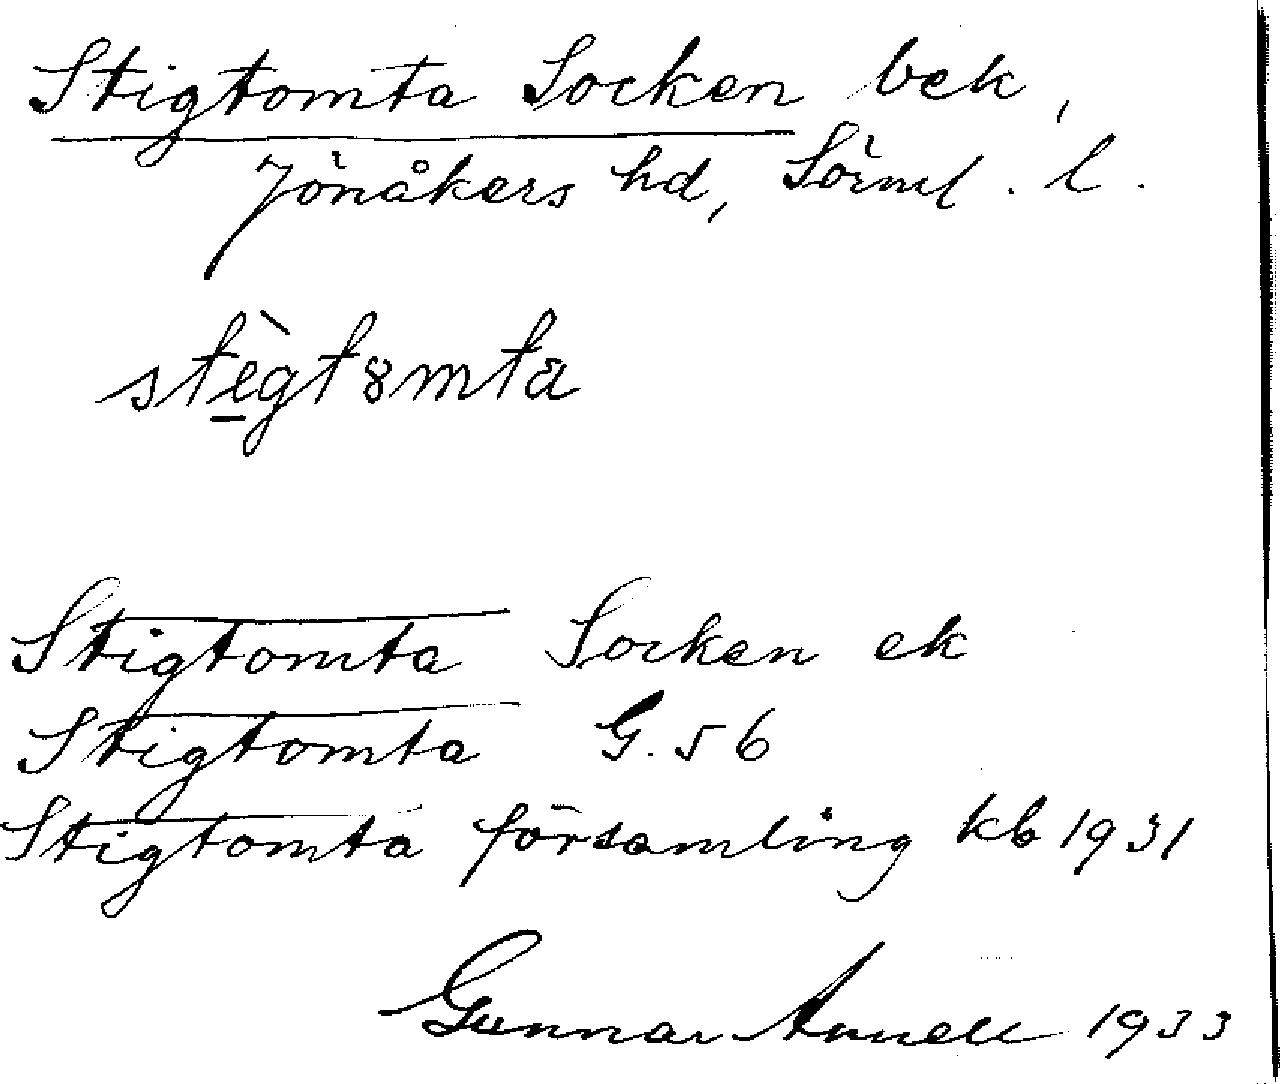 Stigtomta Socken bek,
Jönåkers hd, Sörml. l.
stẹ̀gt8mta
Stigtomta Socken ek
Stigtomta G. 56
Stigtomta församling kb 1931
Gunnar Annell 1933